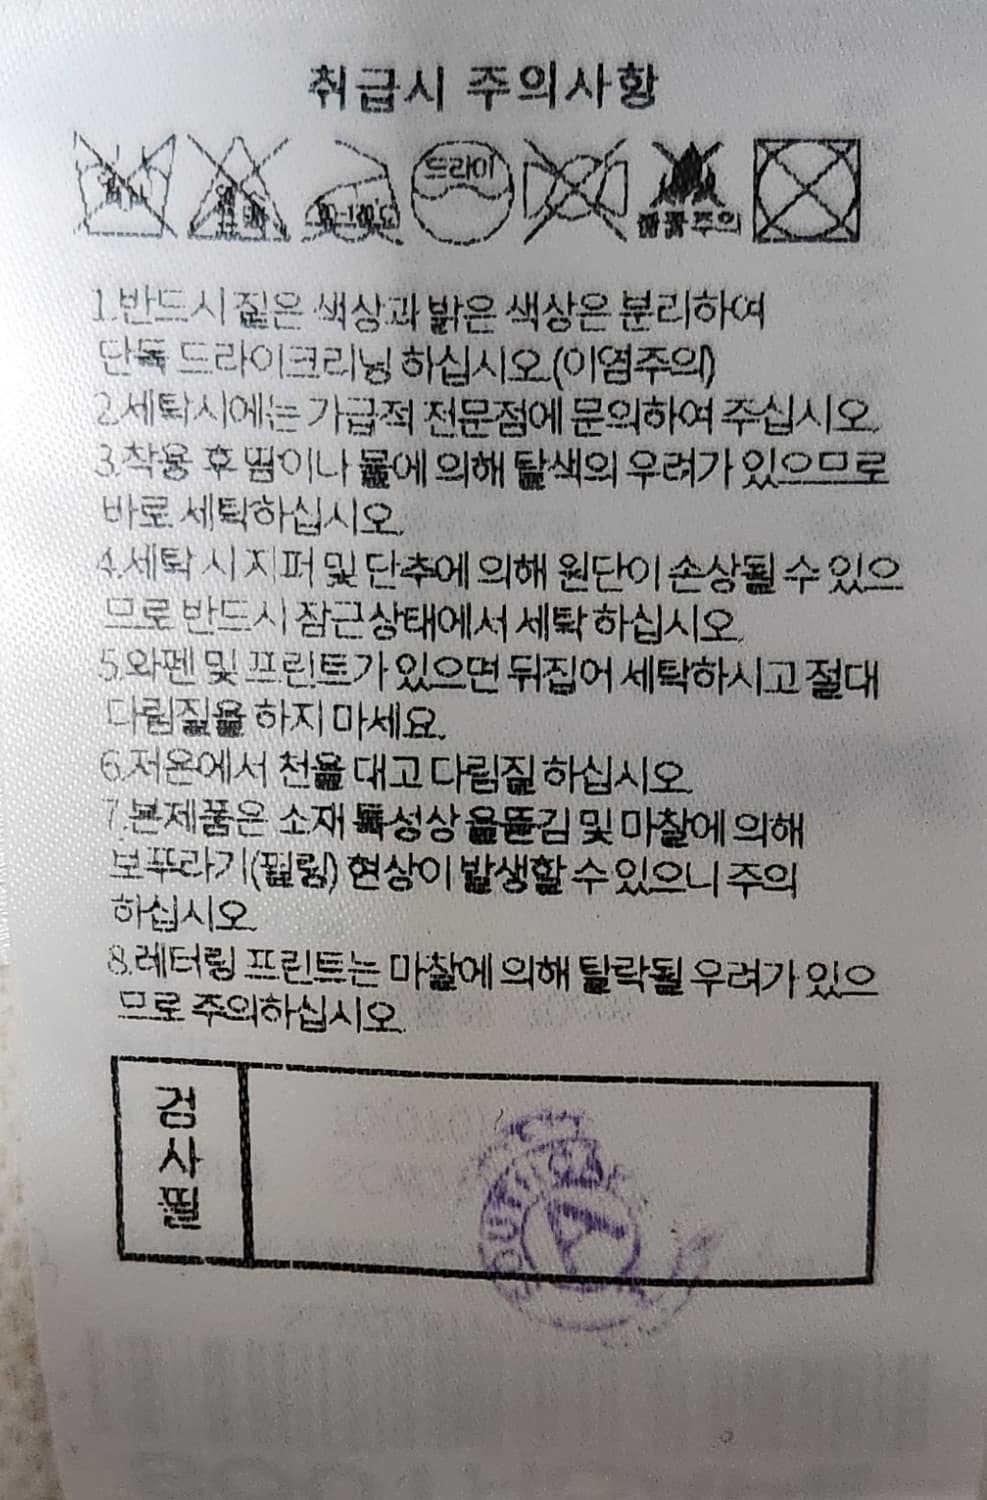 취급시 주의사항
드라이
불꽃주의
1.반드시 짙은 색상과 밝은 색상은 분리하여
단독 드라이크리닝 하십시오.(이염주의)
2.세탁시에는 가급적 전문점에 문의하여 주십시오.
3.착용 후 땀이나 물에 의해 탈색의 우려가 있으므로
바로 세탁하십시오.
4.세탁 시 지퍼 및 단추에 의해 원단이 손상될 수 있으
므로 반드시 잠근상태에서 세탁 하십시오.
5.와펜 및 프린트가 있으면 뒤집어 세탁하시고 절대
다림질을 하지 마세요.
6.저온에서 천을 대고 다림질 하십시오.
7.본제품은 소재 특성상 올뜯김 및 마찰에 의해
보푸라기(필링) 현상이 발생할 수 있으니 주의
하십시오.
8.레터링 프린트는 마찰에 의해 탈락될 우려가 있으
므로 주의하십시오.
검
사
필
A